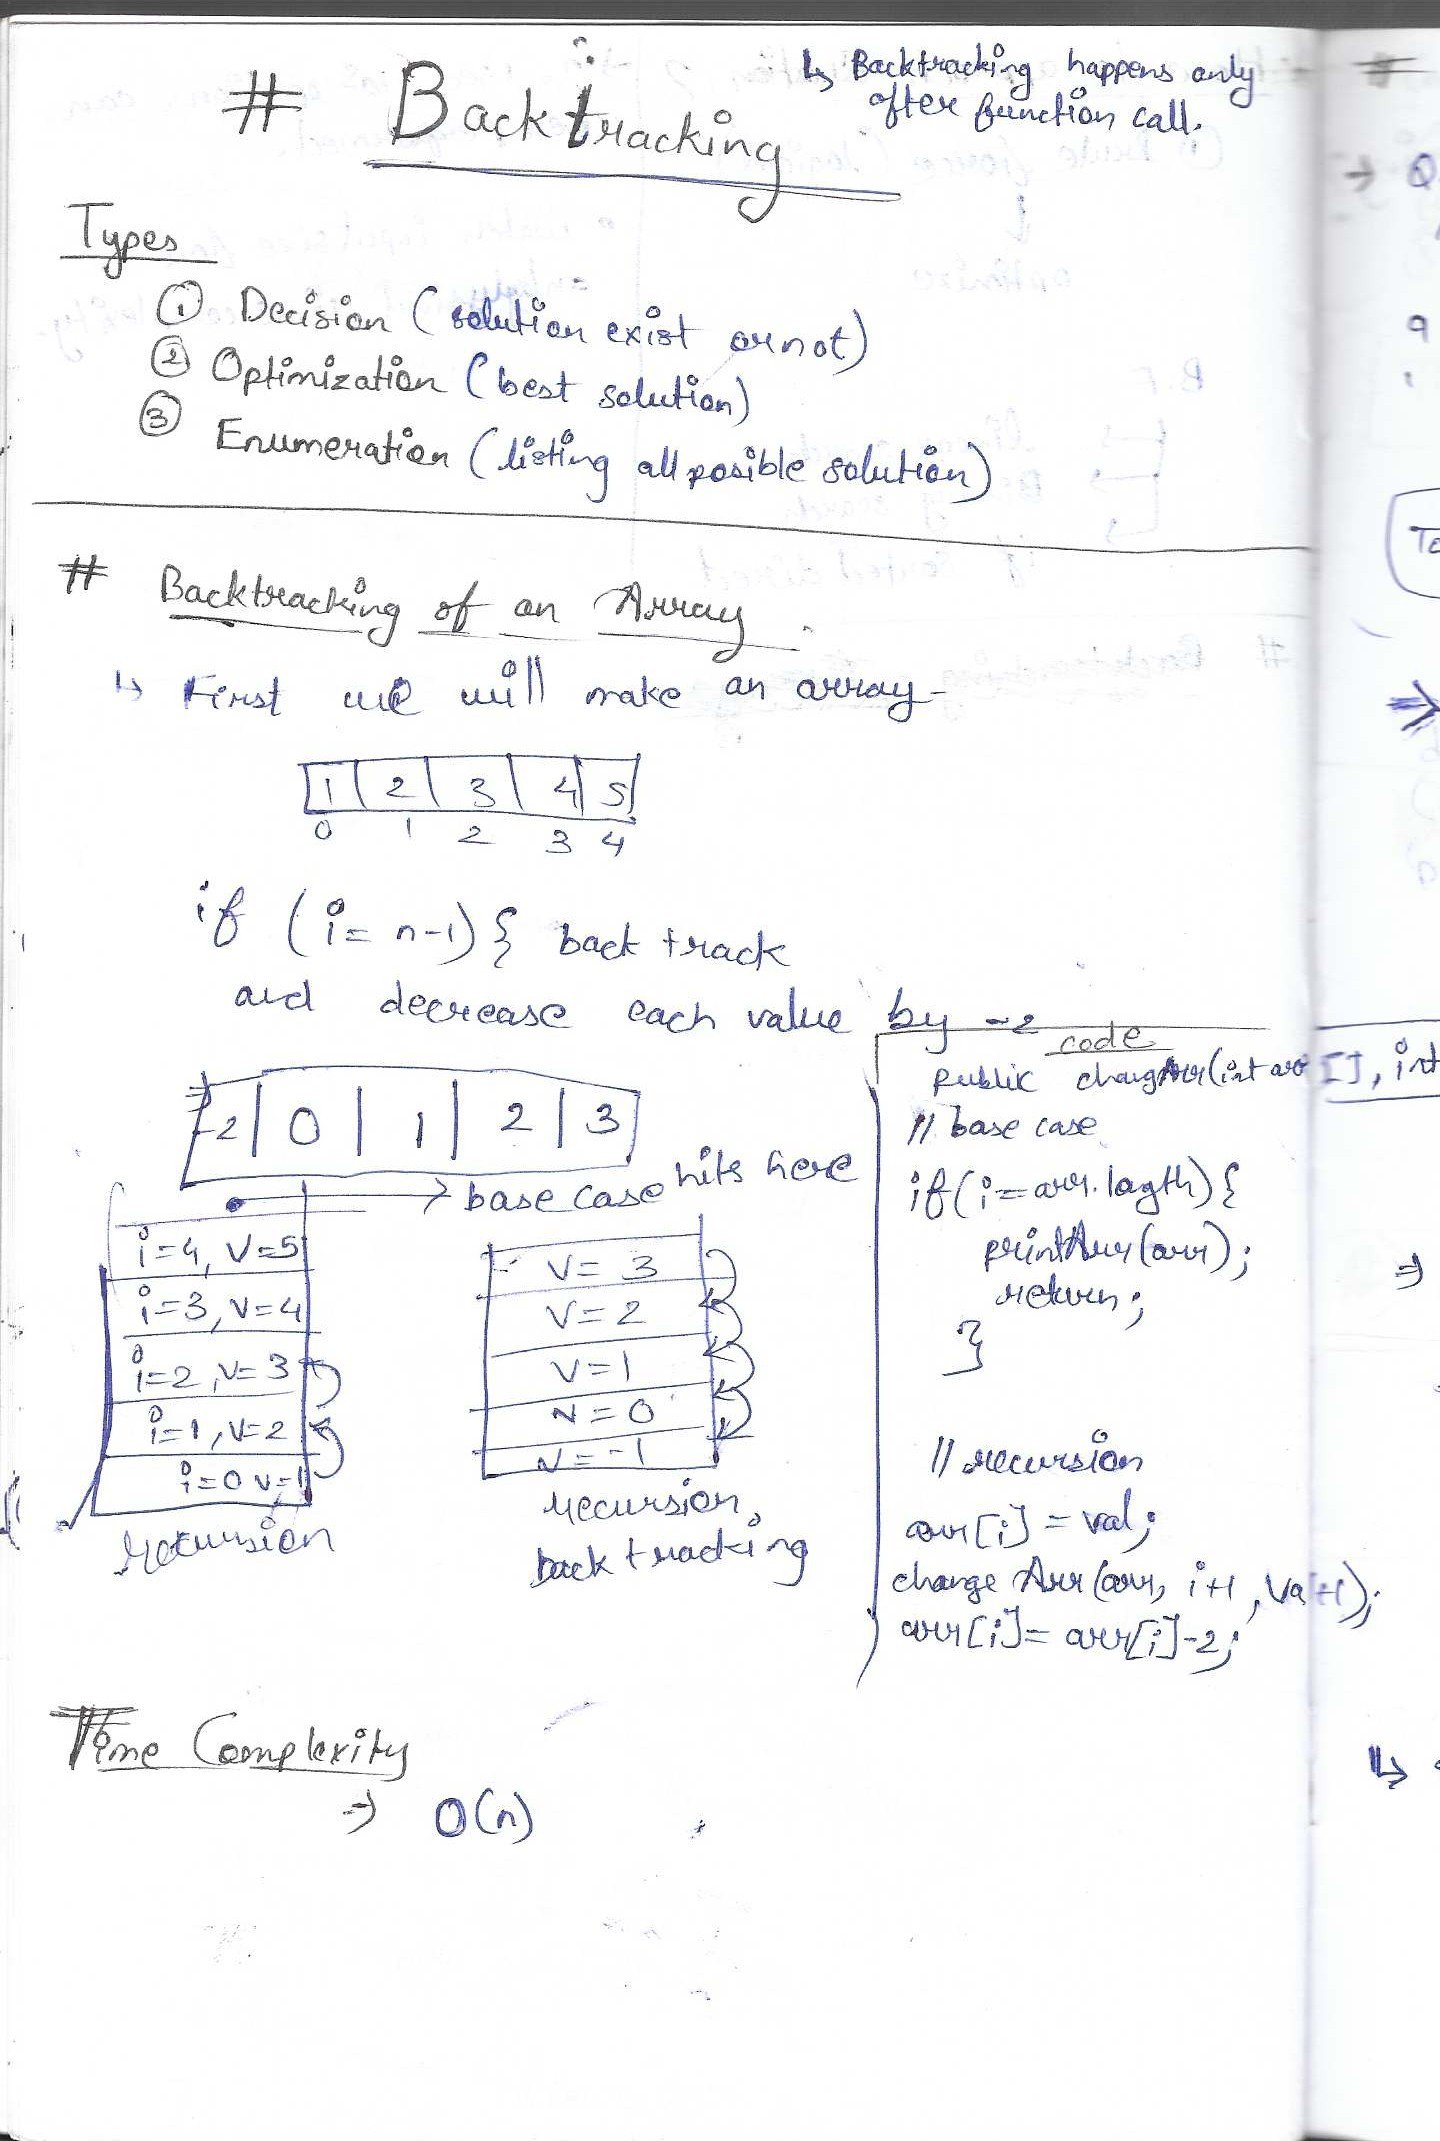 # Backtracking
↳ Backtracking happens only
after function call.
Types
① Decision (solution exist or not)
② Optimization (best solution)
③ Enumeration (listing all posible solution)
# Backtracking of an Array.
↳ First we will make an array-
1 2 3 4 5
0 1 2 3 4
if (i= n-1) { back track
and decrease each value by -2
0 1 2 3
→ base case hits here
i=4, V=5
i=3, V=4
i=2, V=3
i=1, V=2
i=0 V=1
recursion
V= 3
V= 2
V=1
V=0
V=-1
recursion
backtracking
code
public changeArr(int arr[], int
// base case
if(i=arr.length){
printArr(arr);
return;
}
// recursion
arr[i] = val;
change Arr(arr, i+1, val+1);
arr[i]= arr[i]-2;
Time Complexity
⇒ O(n)